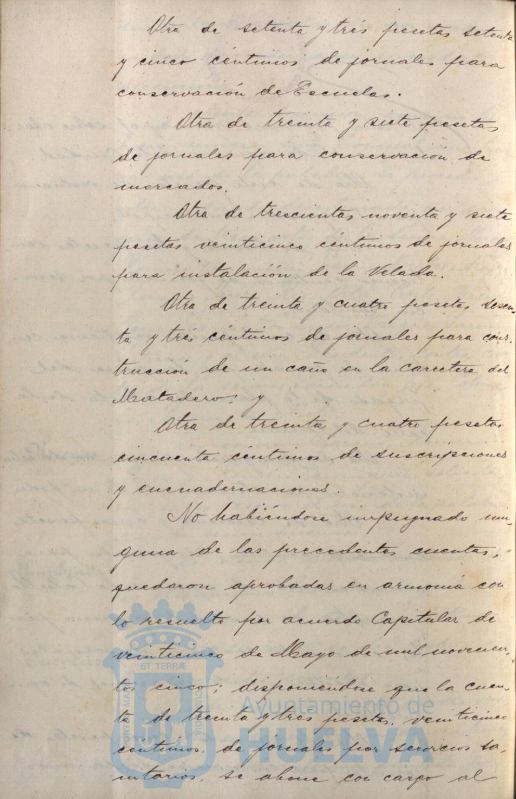 Otra de setenta y tres pesetas setenta
y cinco céntimos de jornales para
conservación de Escuelas.
Otra de treinta y siete pesetas
de jornales para conservación de
mercados.
Otra de trescientas noventa y siete
pesetas veinticinco céntimos de jornales
para instalación de la Velada.
Otra de treinta y cuatro pesetas sesen-
ta y tres céntimos de jornales para cons-
trucción de un caño en la carretera del
Matadero; y
Otra de treinta y cuatro pesetas
cincuenta céntimos de suscripciones
y encuadernaciones.
No habiéndose impugnado nin-
guna de las precedentes cuentas,
quedaron aprobadas en armonía con
lo resuelto por acuerdo Capitular de
veinticinco de Mayo de mil novecien-
tos cinco; disponiéndose que la cuen-
ta de treinta y tres pesetas, veinticinco
céntimos, de jornales por servicios sa-
nitarios, se abone con cargo al
ET TERRÆ
Ayuntamiento de
HUELVA